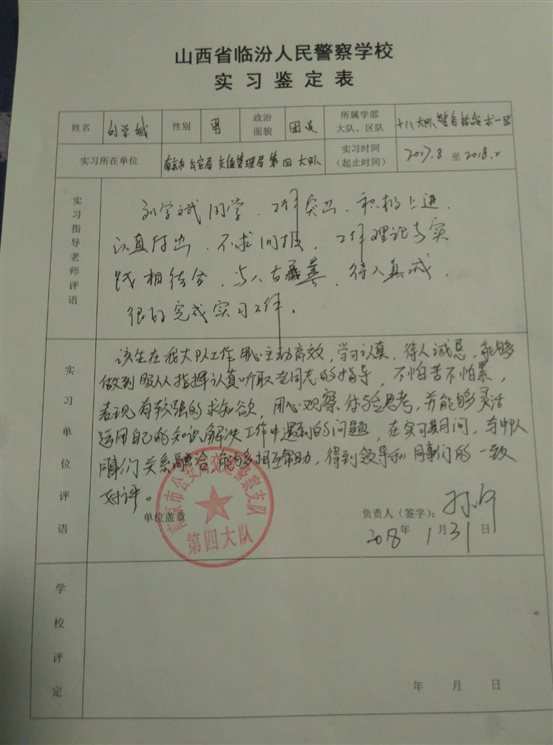 山西省临汾人民警察学校
实习鉴定表
姓名 性别 男 政治面貌 团员 所属学部大队、区队 十八大队
实习所在单位 公安局交通管理局第四大队 实习时间(起止时间) 2017.8 至 2018.2
实习指导老师评语
刘学斌同学,工作突出,积极上进,
认真付出,不求回报,工作理论与实
践相结合,与人古善,待人真诚,
很好完成实习工作。
实习单位评语
该生在我大队工作用心主动高效,学习认真,待人诚恳,能够
做到服从指挥认真听取老同志的指导,不怕苦不怕累,
表现有较强的求知欲,用心观察、体会思考,并能够灵活
运用自己的知识解决工作中遇到的问题,在实习期间,与中队
同事们关系融洽,能够相互帮助,得到领导和同事们的一致
好评。
单位盖章
负责人(签字):
2018年1月31日
市公安局交通警察支队
第四大队
学校评定
年 月 日